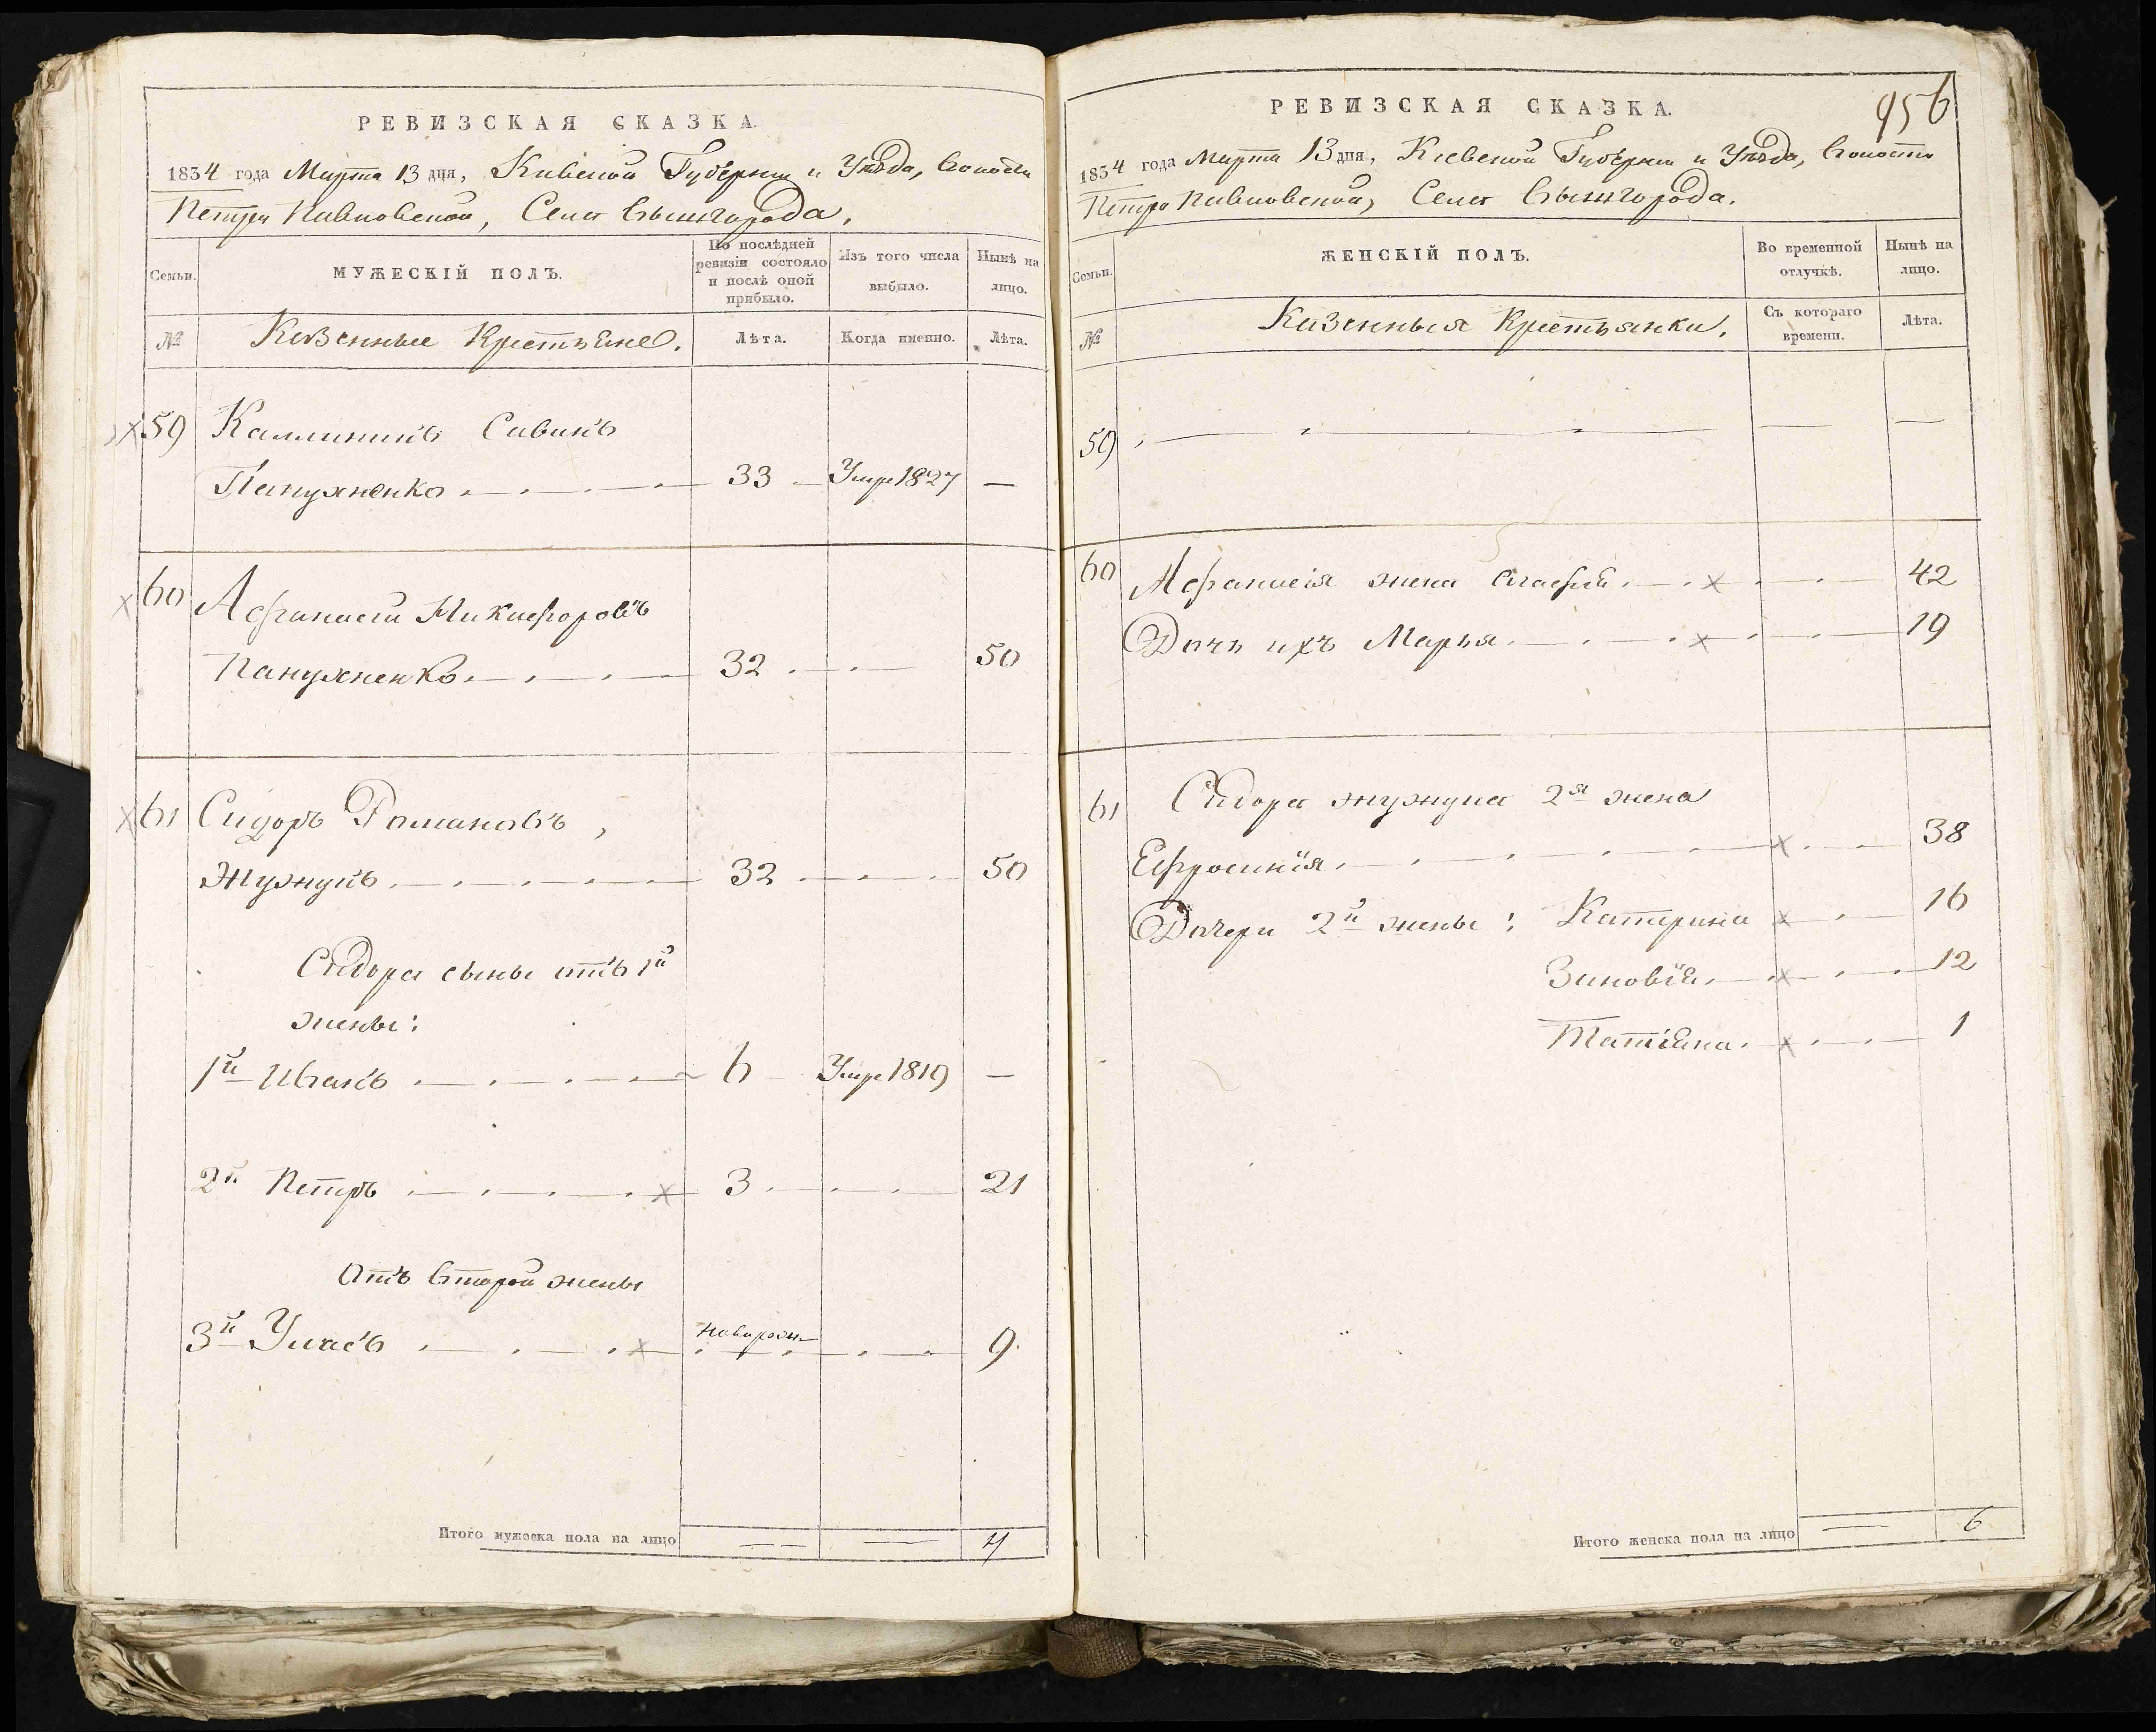 РЕВИЗСКАЯ СКАЗКА.
1834 года Марта 13 дня, Киевской Губернии и Уезда, Волости
Петро Павловской, Села Вышгорода.
Семьи.
МУЖЕСКІЙ ПОЛЪ.
По послѣдней ревизіи состояло и послѣ оной прибыло.
Изъ того числа выбыло.
Нынѣ на лицо.
№ Казенные Крестьяне. Лѣта. Когда именно. Лѣта.
59 Каллиникъ Савинъ
33 Умре 1827 —
60 Афанасій Никифоровъ
32 50
61 Сидоръ Романовъ,
Жужукъ 32 50
Сидора сыны отъ 1й
жены:
1й Иванъ 6 Умре 1819 —
2й Петръ 3 21
Отъ второй жены
3й Уласъ новорож. 9
Итого мужеска пола на лицо 4
956
РЕВИЗСКАЯ СКАЗКА.
1834 года Марта 13 дня, Киевской Губернии и Уезда, Волости
Петро Павловской, Села Вышгорода.
Семьи.
ЖЕНСКІЙ ПОЛЪ.
Во временной отлучкѣ.
Нынѣ на лицо.
№ Казенныя Крестьянки. Съ котораго времени. Лѣта.
59 — — —
60 Афанасія жена 42
Дочь ихъ Марья 19
61 Сидора Жужука 2я жена
Ефросинія 38
Дочери 2й жены: Катерина 16
Зиновія 12
Татіана 1
Итого женска пола на лицо — 6